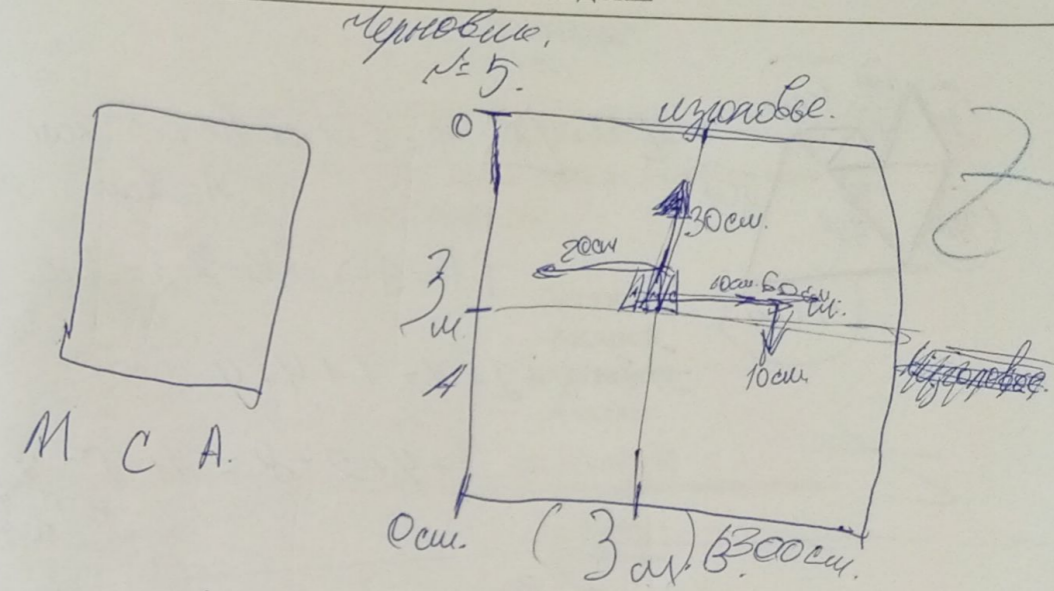 Черновик.
№ 5.
О
изголовье.
30см.
20см
10см. 60см
3
м.
А
10см.
изголовье.
М С А.
0см.
(3м).
В.
300см.